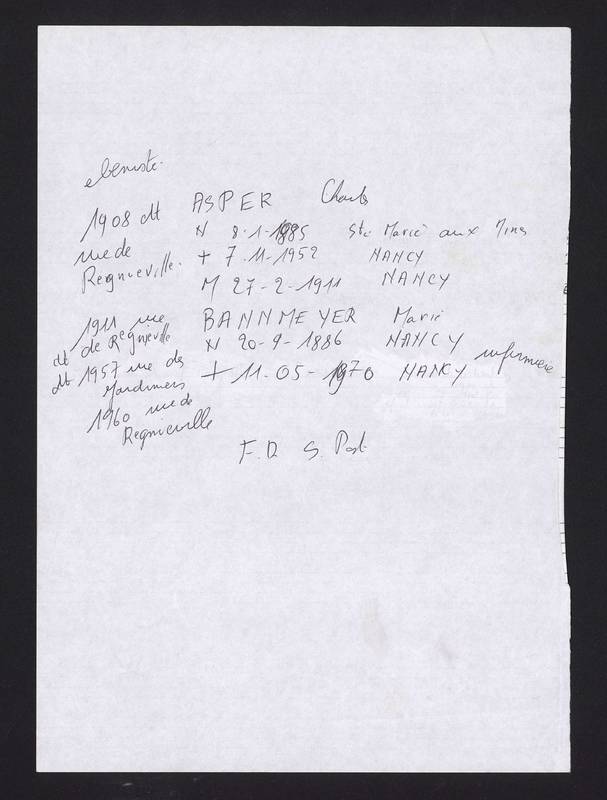 ebeniste.
ASPER Charles
1908 dt
rue de
Regnieville.
N 8-1-1885 Ste Marie aux Mines
+ 7-11-1952 NANCY
M 27-2-1911 NANCY
BANNMEYER Marie
N 20-9-1886 NANCY
+ 11-05-1970 NANCY infirmiere
1911 rue
dt de Regnieville
dt 1957 rue des
Jardiniers
1960 rue de
Regnieville
F.D S. Post